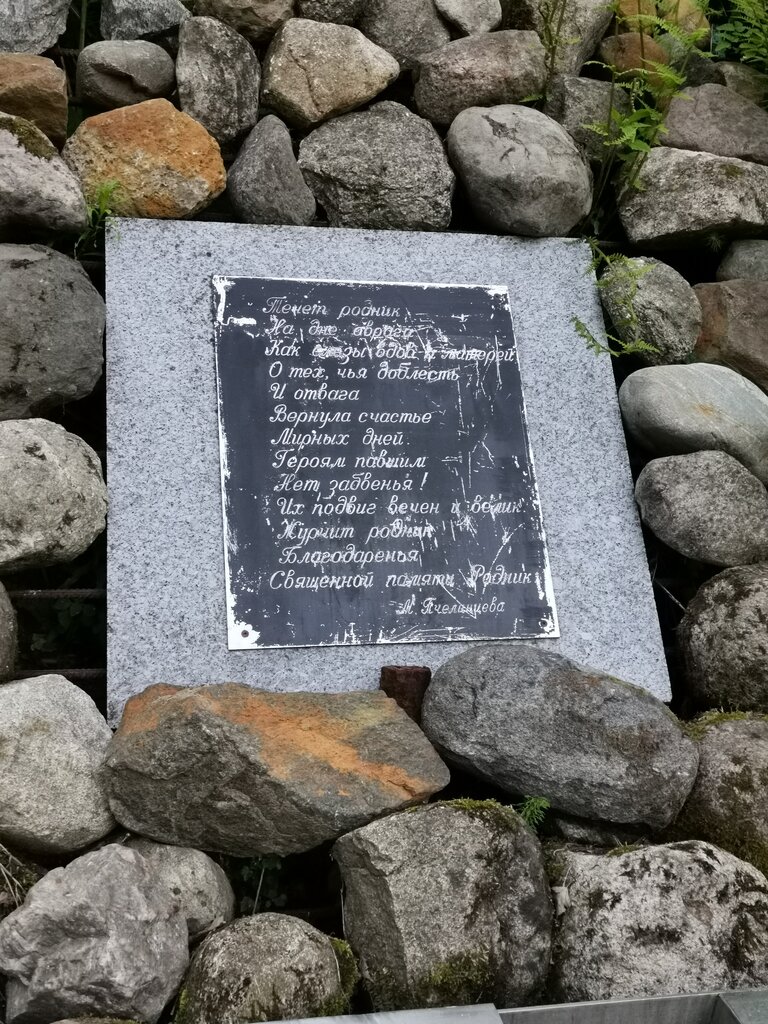 Течет родник
На дне оврага
Как слезы вдов и матерей
О тех, чья доблесть
И отвага
Вернула счастье
Мирных дней.
Героям павшим
Нет забвенья!
Их подвиг вечен и велик
Журчит родник
Благодаренья
Священной памяти Родник
М. Пчелинцева